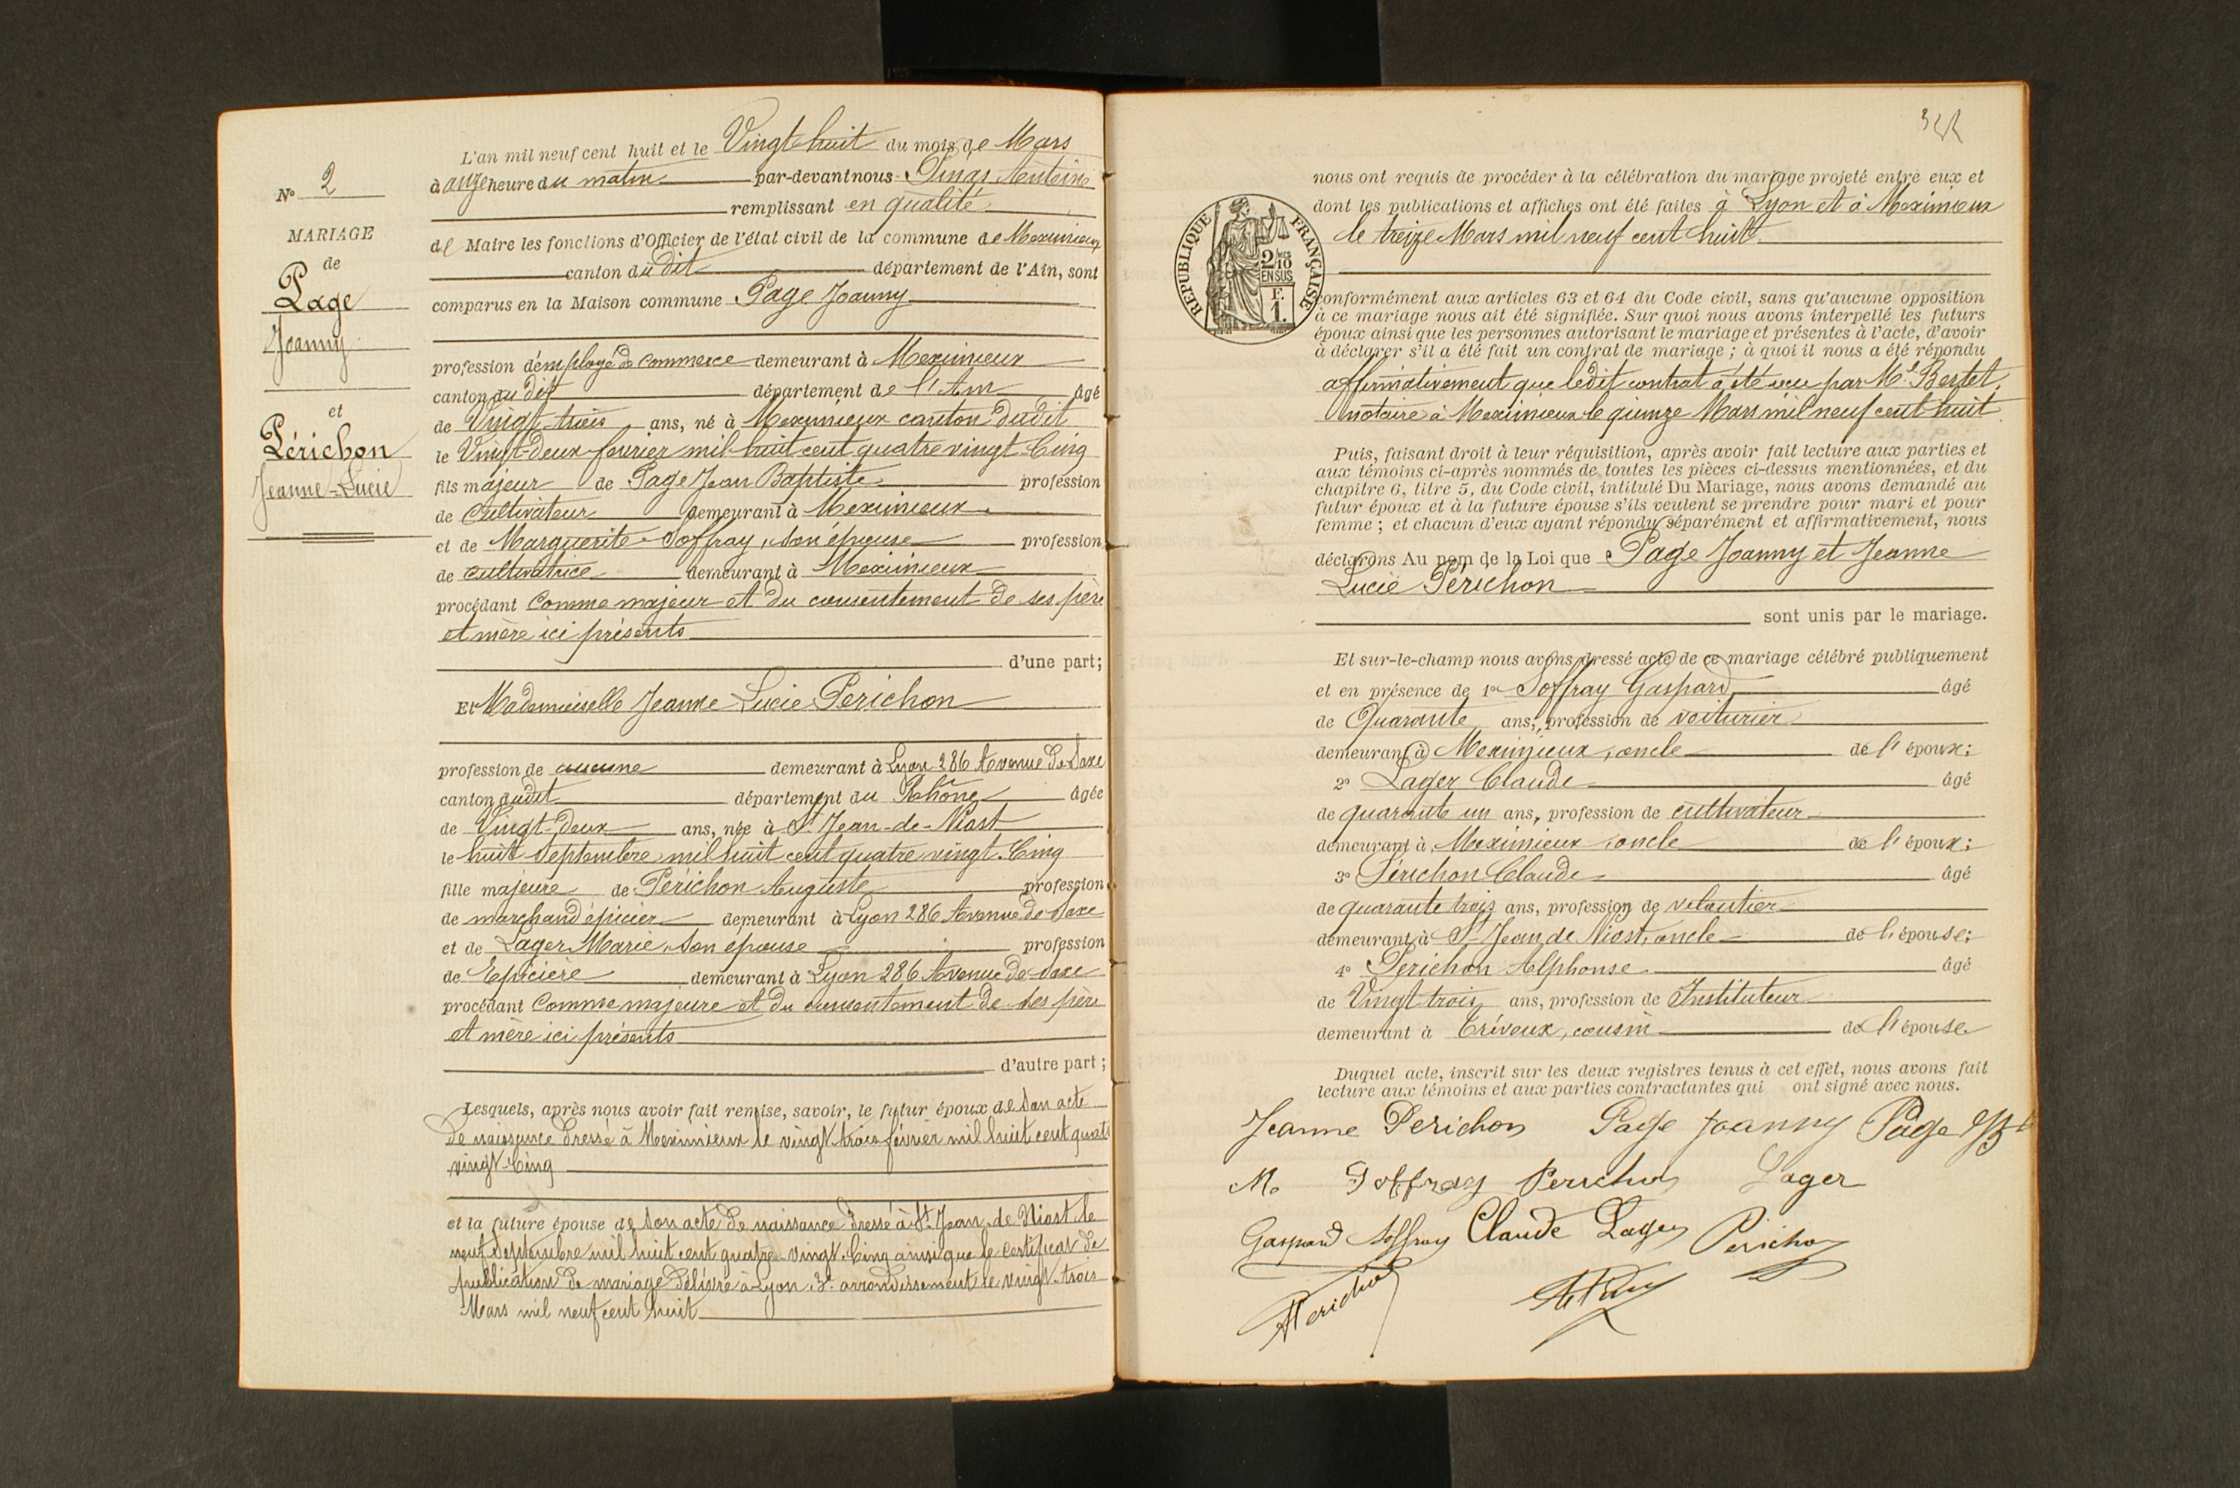 N° 2
MARIAGE
de
Page
Joanny
et
Périchon
Jeanne-Lucie
L'an mil neuf cent huit et le Vingt-huit du mois de Mars
à onze heure du matin par-devant nous
remplissant en qualité
de Maire les fonctions d'Officier de l'état civil de la commune de Meximieux
canton du dit département de l'Ain, sont
comparus en la Maison commune Page Joanny
profession d'employé de commerce demeurant à Meximieux
canton du dit département de l'Ain âgé
de Vingt-trois ans, né à Meximieux canton dudit
le Vingt-deux février mil huit cent quatre vingt Cinq
fils majeur de Page Jean Baptiste profession
de Cultivateur demeurant à Meximieux
et de Marguerite Joffray, son épouse profession
de cultivatrice demeurant à Meximieux
procédant Comme majeur et du consentement de ses père
et mère ici présents
d'une part;
Et Mademoiselle Jeanne Lucie Perichon
profession de aucune demeurant à Lyon 286 Avenue de Saxe
canton dudit département du Rhône âgée
de Vingt-Deux ans, née à St Jean-de-Niost
le huit Septembre mil huit cent quatre vingt. Cinq
fille majeure de Périchon Auguste profession
de marchand épicier demeurant à Lyon 286 Avenue de Saxe
et de Lager Marie, son épouse profession
de Epicière demeurant à Lyon 286 Avenue de Saxe
procédant Comme majeure et du consentement de ses père
et mère ici présents
d'autre part;
Lesquels, après nous avoir fait remise, savoir, le futur époux de Son acte
de naissance dressé à Meximieux le vingt trois février mil huit cent quatre
vingt-Cinq
et la future épouse de Son acte de naissance dressé à St Jean de Niost le
neuf Septembre mil huit cent quatre-vingt. Cinq ainsi que le certificat de
publication de mariage délivré à Lyon 3e arrondissement le vingt-trois
Mars mil neuf cent huit
nous ont requis de procéder à la célébration du mariage projeté entre eux et
dont les publications et affiches ont été faites à Lyon et à Meximieux
le treize Mars mil neuf cent huit
RÉPUBLIQUE FRANÇAISE
2/10 EN SUS
F. 1.
conformément aux articles 63 et 64 du Code civil, sans qu'aucune opposition
à ce mariage nous ait été signifiée. Sur quoi nous avons interpellé les futurs
époux ainsi que les personnes autorisant le mariage et présentes à l'acte, d'avoir
à déclarer s'il a été fait un contrat de mariage; à quoi il nous a été répondu
affirmativement que ledit contrat a été reçu par Me Bertet,
notaire à Meximieux le quinze Mars mil neuf cent huit
Puis, faisant droit à leur réquisition, après avoir fait lecture aux parties et
aux témoins ci-après nommés de toutes les pièces ci-dessus mentionnées, et du
chapitre 6, titre 5, du Code civil, intitulé Du Mariage, nous avons demandé au
futur époux et à la future épouse s'ils veulent se prendre pour mari et pour
femme; et chacun d'eux ayant répondu séparément et affirmativement, nous
déclarons Au nom de la Loi que Page Joanny et Jeanne
Lucie Périchon
sont unis par le mariage.
Et sur-le-champ nous avons dressé acte de ce mariage célébré publiquement
et en présence de 1° Joffray Gaspard âgé
de Quarante ans, profession de voiturier
demeurant à Meximieux, oncle de l'époux;
2° Lager Claude âgé
de quarante un ans, profession de cultivateur
demeurant à Meximieux, oncle de l'époux;
3° Périchon Claude âgé
de quarante trois ans, profession de
demeurant à St Jean de Niost, oncle de l'épouse;
4° Perichon Alphonse âgé
de Vingt trois ans, profession de Instituteur
demeurant à Trévoux, cousin de l'épouse
Duquel acte, inscrit sur les deux registres tenus à cet effet, nous avons fait
lecture aux témoins et aux parties contractantes qui ont signé avec nous.
Jeanne Perichon Page Joanny Page
M. Joffray Perichon Lager
Gaspard Joffray Claude Lager Perichon
Perichon